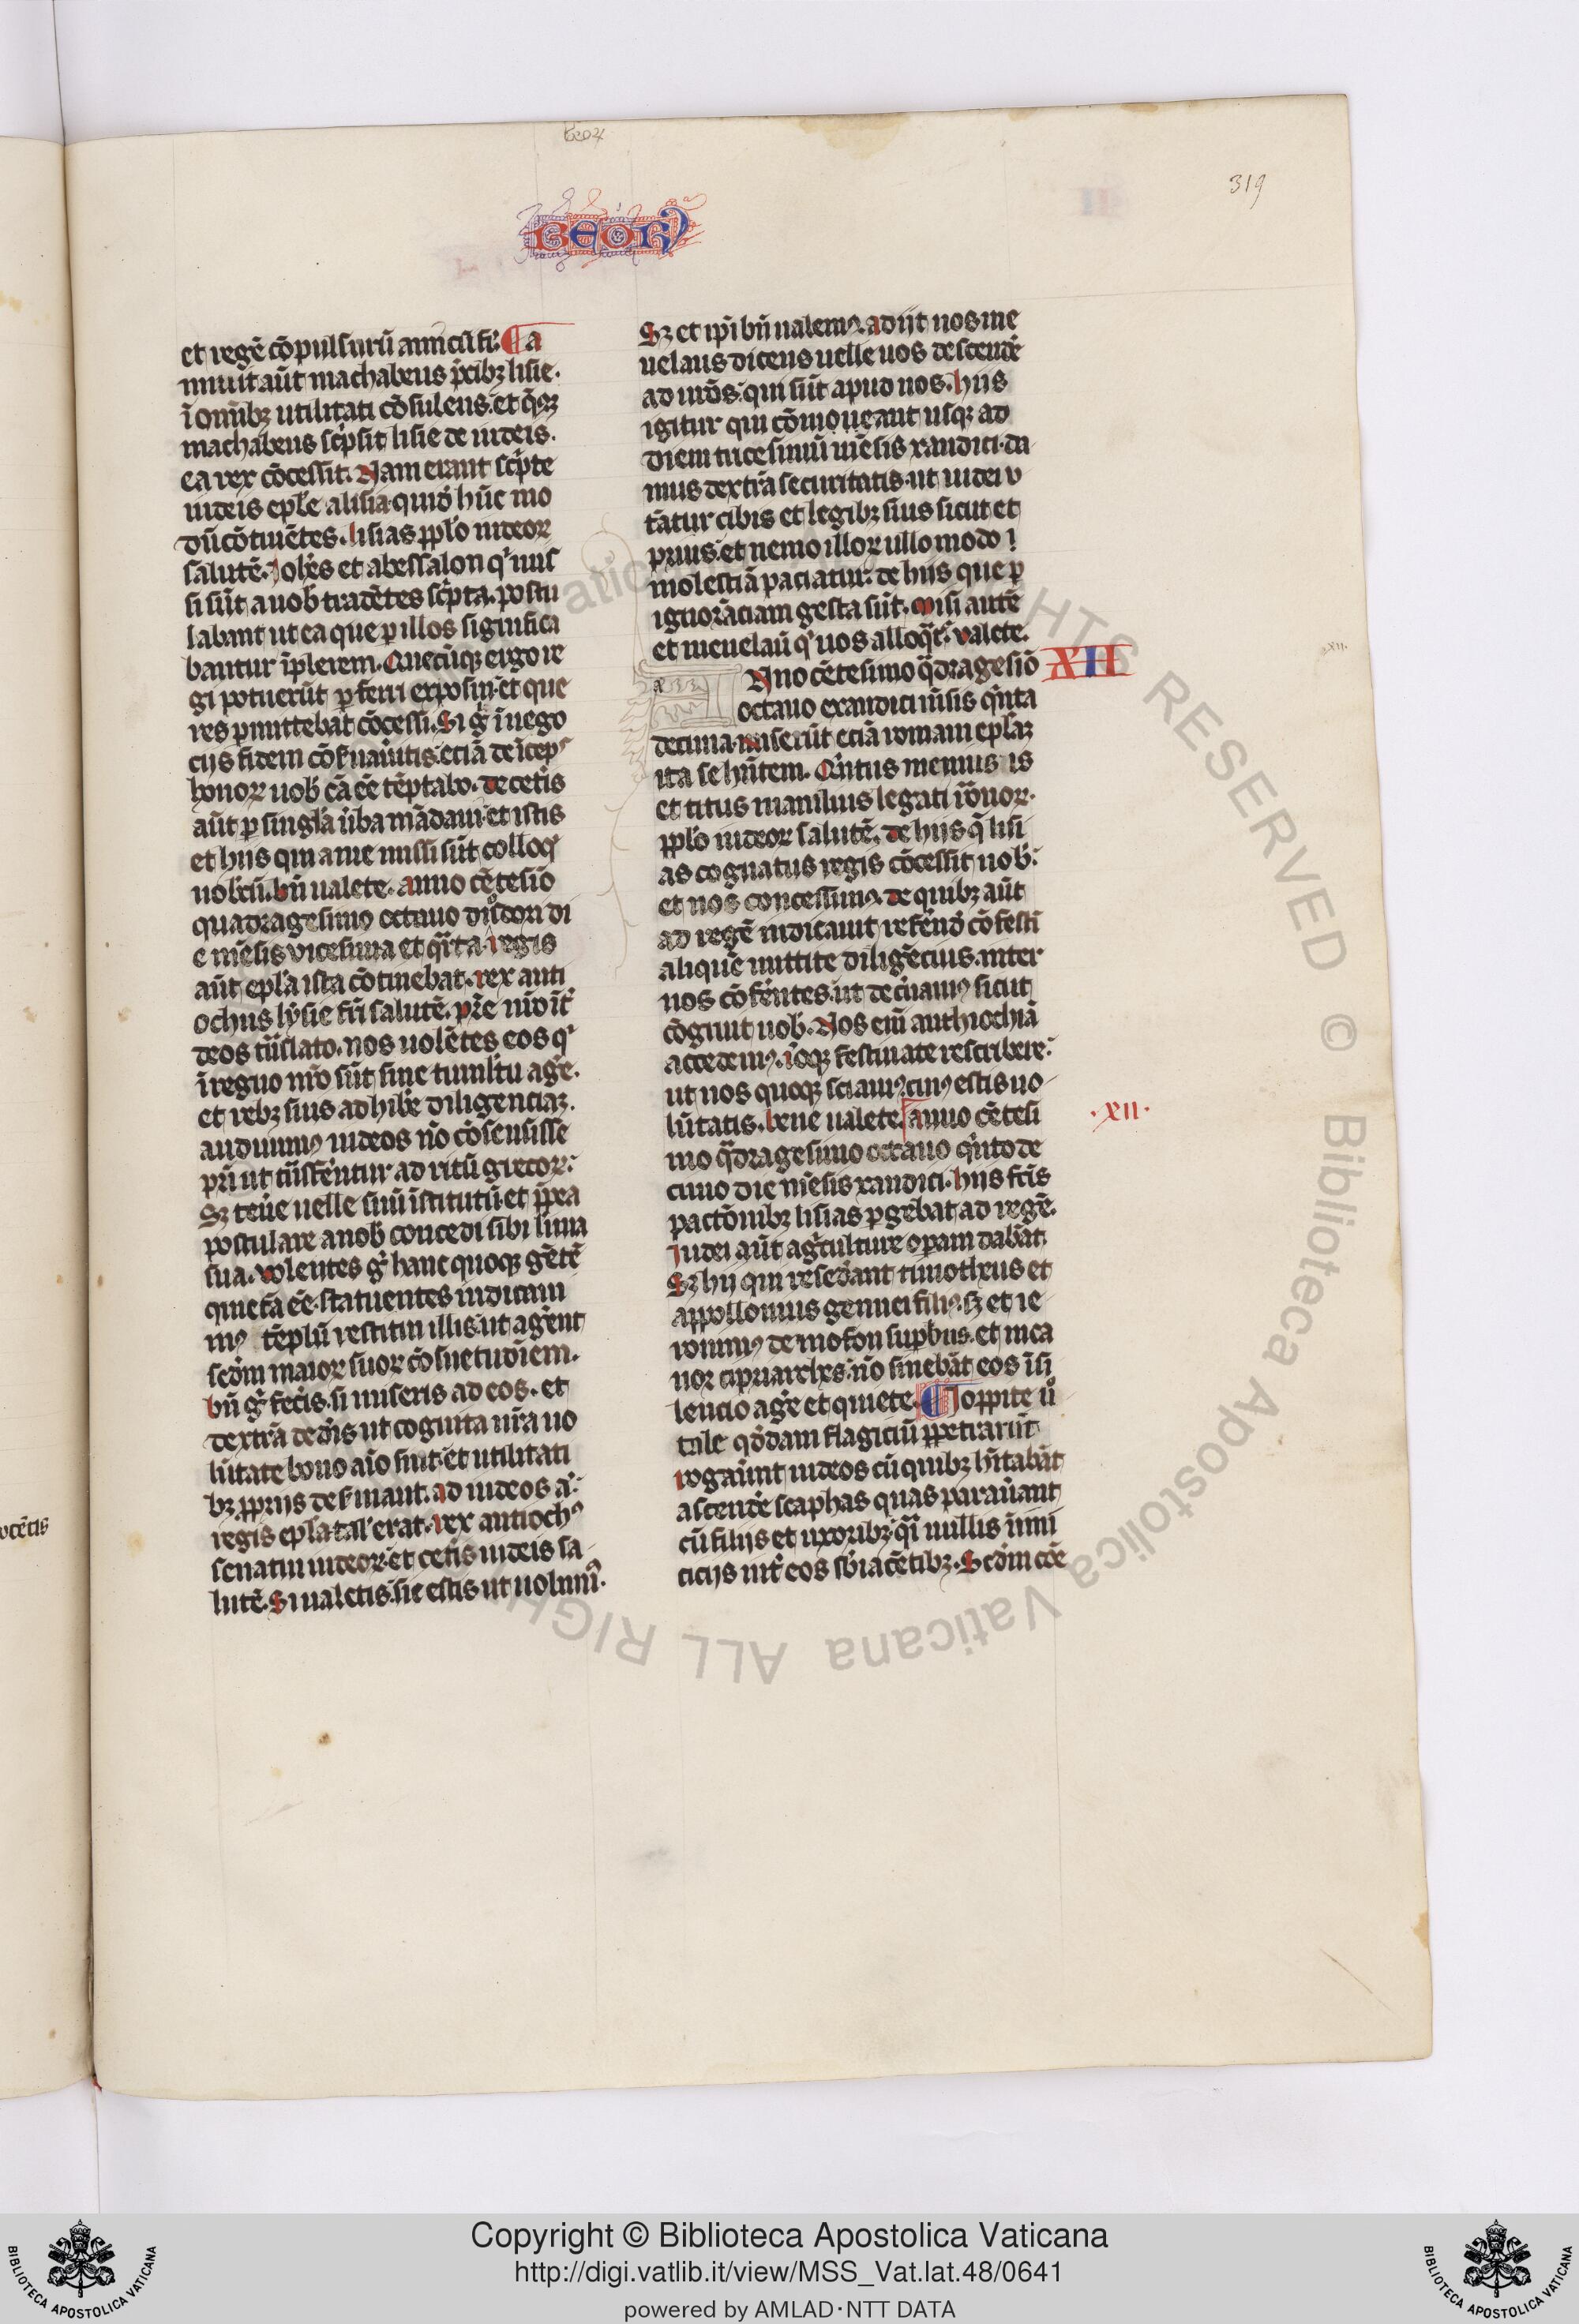 319
BEOR
et regē cōpulsurū amicū fi.ͥ ¶ A
nnuit aūt machabeus p̄cibꝫ lisie.
ī omībꝫ utilitati cōsulens. et q̄cūqꝫ
machabeus sc̄psit lisie de iudeis.
ea rex cōcessit. Nam erant sc̄pte
iudeis eple a lisia quid' hūc mo
dū cōtinētes. lisias pplo iudeoꝝ
salutē. Iohēs et abessalon qͥ mis
si sūt a uob tradētes sc̄pta. postu
labant ut ea que p illos significa
bantur īplerem. Quecūqꝫ ergo re
gi potuerūt pferri exposui. et que
res pmittebat cōcessi. Si gͥ ī nego
cijs fidem cōseruaūitis. eciā deīcepˢ
bonoꝝ uob cā ēe tēptabo. de cet̄is
aūt p singla ūba mādaui et istis
et hiis qui a me missi sūt colloqͥ
uobcū. bn̄ ualete. anno cētesiō
quadragesimo octauo dioscori di
e mēsis vicesima et qͣrta. regis
aūt epla ista cōtinebat. rex anti
ochus lysie fri salutē. p̄re nr̄o īt'
deos trāslato. nos uolētes eos qͥ
ī regno nr̄o sūt sine tumltu agē.
et rebꝫ suis adhibē diligenciaꝫ.
audiuimꝰ iudeos nō cōsensisse
pr̄i ut trāsfērtur ad ritū grecoꝝ.
Sꝫ tenē uelle suū īstitutū. et pp̄ea
postulare a nob concedi sibi līma
sua. volentes gͥ hanc quoqꝫ gētē
quietā ēe. statuentes iudicaui
mꝰ tēplū restitui illis. ut agēnt
scdm maioꝝ suoꝝ cōsuetudīem.
bn̄ gͥ fecis. si miseris ad eos. et
dextrā dedis ut cognita nr̄a uo
lūtate bono aīo sint. et utilitati
bꝫ pprijs deseruiant. ad iudeos aͧ
regis epla tal' erat. rex antiochꝰ
senatui iudeoꝝ et cet̄is iudeis sa-
lutē. Si ualetis. sic estis ut uolumꝰ.
Sꝫ et ipi bn̄ ualemꝰ. adijt nos me
nelaus dicens uelle uos descendē
ad urōs. qui sūt apud nos. hiis
igitur qui cōmoueant usqꝫ ad
diem tricesimū mēsis xandici. da
mus dextrā securitatis. ut iudei u
tātur cibis et legibꝫ suis sicut et
prius. et nemo illoꝝ ullo modo
molestiā paciatur. de hiis que p
ignorāciam gesta sūt. misi autē
et menelaū qͥ uos alloqͣt. valete.
XII
Anno cētesimo qͣdragesiō
octauo exandici mēsis qͥnta
decima. miserūt eciā romani eplaꝫ
ita se hn̄tem. Qͥntus memius is
et titus manilius legati rōnoꝝ.
pplo iudeoꝝ salutē. de hiis q̄ lisi
as cognatus regis cōcessit uob.
et nos concessimꝰ. de quibꝫ aūt
ad regē iudicauit refērnd' cōfestī
aliquē mittite diligēcius. inter
uos cōfērntes. ut decnamꝰ sicut
cōgruit uob. Nos em̄ anthiochiā
accedemꝰ. ioqꝫ festinate rescribere.
ut nos quoqꝫ sciamꝰ cuiꝰ estis uo-
lūtatis. bene ualete. anno cētesi
·XII·
mo qͣdragesimo octauo qͥnto de
cimo die mēsis xandici. hiis fcis
pactōnibꝫ lisias pgebat ad regē.
Iudei aūt agͥculture opam dabāt
Sꝫ hij qui resedāt timotheus et
appollonius gennei filiꝰ. sꝫ et ie
ronimꝰ demofon supbus. et nica
nor cipriarches. nō sinebāt eos ī si
lencio agē et quiete. ¶ Ioppite ū
tale qͦddam flagiciū ppetrarūt
rogaūnt iudeos cū quibꝫ hitabāt
ascendē scaphas quas paraūant
cū filijs et uxoribꝫ. qͣi nullis īimi
cicijs int' eos sbiacētibꝫ. Scdm cōe